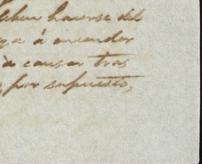 deben hacerse del
ga á encender
á causar tras
, por supuesto,